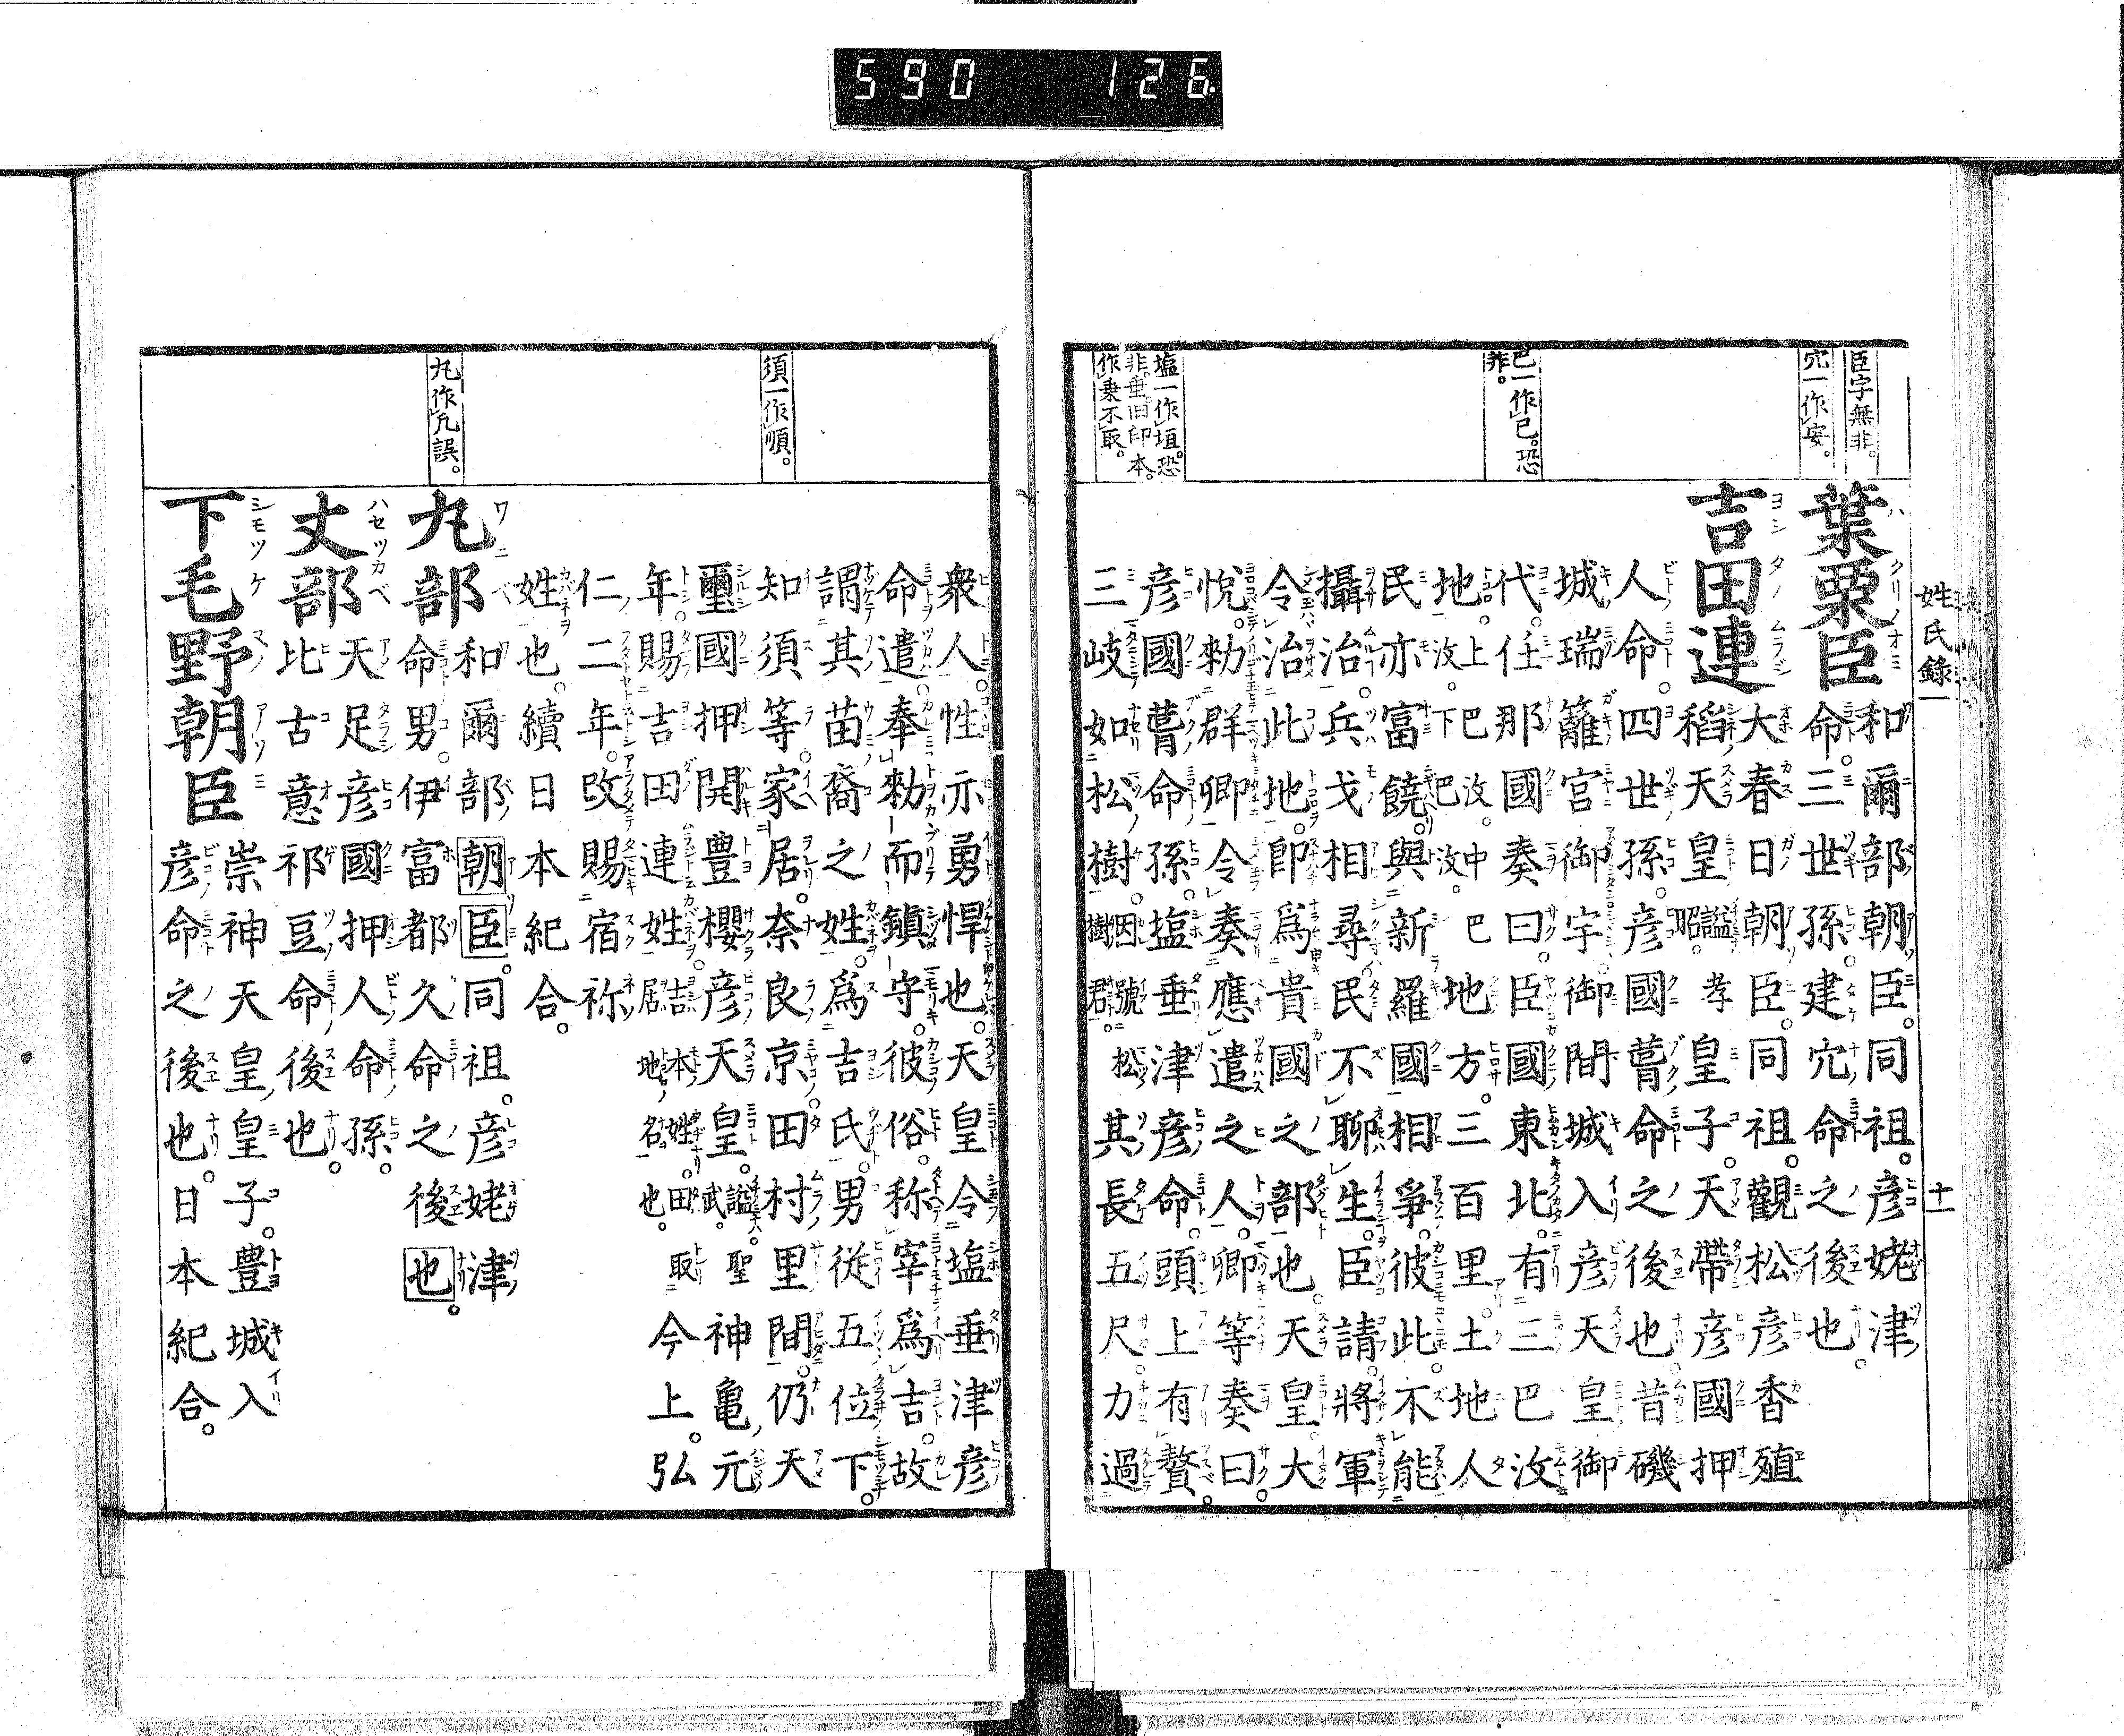 590 126
姓氏錄一 十一
臣字無非。
穴一作安。
巴一作已。恐
非。
塩一作垣。恐
非。垂旧印本。
作乗不取。
葉栗臣 和爾部朝臣。同祖。彦姥津
命。三世孫。建穴命之後也。
吉田連 大春日朝臣。同祖。觀松彦香殖
稻天皇 謚孝昭。 皇子。天帶彦國押
人命。四世孫。彦國葺命之後也昔磯
城瑞籬宮御宇御間城入彦天皇御
代。任那國奏曰。臣國東北。有三巴汶
地。上巴汶。中巴汶。下巴汶。 地方。三百里。土地人
民亦富饒。與新羅國相爭。彼此不能
攝治。兵戈相尋。民不聊生。臣請。將軍
令治此地。即爲貴國之部也。天皇大
悅。勑群卿。令奏應遣之人。卿等奏曰。
彦國葺命孫。塩垂津彦命。頭上有贅。
三岐如松樹 因號松樹君。 其長五尺力過
須一作順。
丸作凡誤。
衆人。性亦勇悍也。天皇令塩垂津彦
命遣。奉勑而鎮守。彼俗。称宰爲吉。故
謂其苗裔之姓爲吉氏男從五位下。
知須等。家居奈良京。田村里間。仍天
璽國押開豊櫻彦天皇。 謚聖武。 神亀元
年。賜吉田連姓 吉本姓。田取居地名也。 今上。弘
仁二年。改賜宿祢
姓也。續日本紀合。
丸部 和爾部朝臣。同祖。彦姥津
命男。伊富都久命之後也。
丈部 天足彦國押人命孫。
比古意祁豆命後也。
下毛野朝臣 崇神天皇皇子。豊城入
彦命之後也。日本紀合。